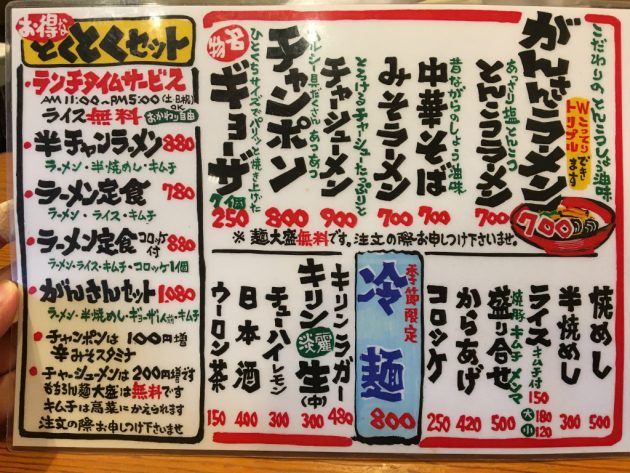 お得な
とくとくセット
・ランチタイムサービス
AM11:00~PM5:00(土日祝OK)
ライス無料 おかわり自由
・半チャンラーメン 880
ラーメン・半焼めし・キムチ
・ラーメン定食 780
ラーメン・ライス・キムチ
・ラーメン定食コロッケ付 880
ラーメン・ライス・キムチ・コロッケ1個
・がんさんセット 1,080
ラーメン・半焼めし・ギョーザ1人前・キムチ
・チャンポンは100円増
辛みそスタミナ
・チャーシューメンは200円増です
もちろん麺大盛は無料です
キムチは高菜にかえられます
注文の際お申しつけ下さいませ
こだわりのとんこつしょう油味
がんさんラーメン
700
Wこってり
トリプル
できます
あっさり塩とんこつ
とんこつラーメン 700
昔ながらのしょう油味
中華そば 700
みそラーメン 700
とろけるチャーシューたっぷりと
チャーシューメン 900
ヘルシー具だくさんあつあつ
チャンポン 800
ひとくちサイズでパリッと焼き上げた
名物
ギョーザ 7個 250
※麺大盛無料です。注文の際お申しつけ下さいませ。
焼めし 500
半焼めし 300
ライス キムチ付 150
大180
小120
焼豚 キムチ メンマ
盛り合せ 500
からあげ 420
コロッケ 250
季節限定
冷麺
800
キリンラガー 480
キリン淡麗生(中) 300
チューハイレモン 300
日本酒 400
ウーロン茶 150